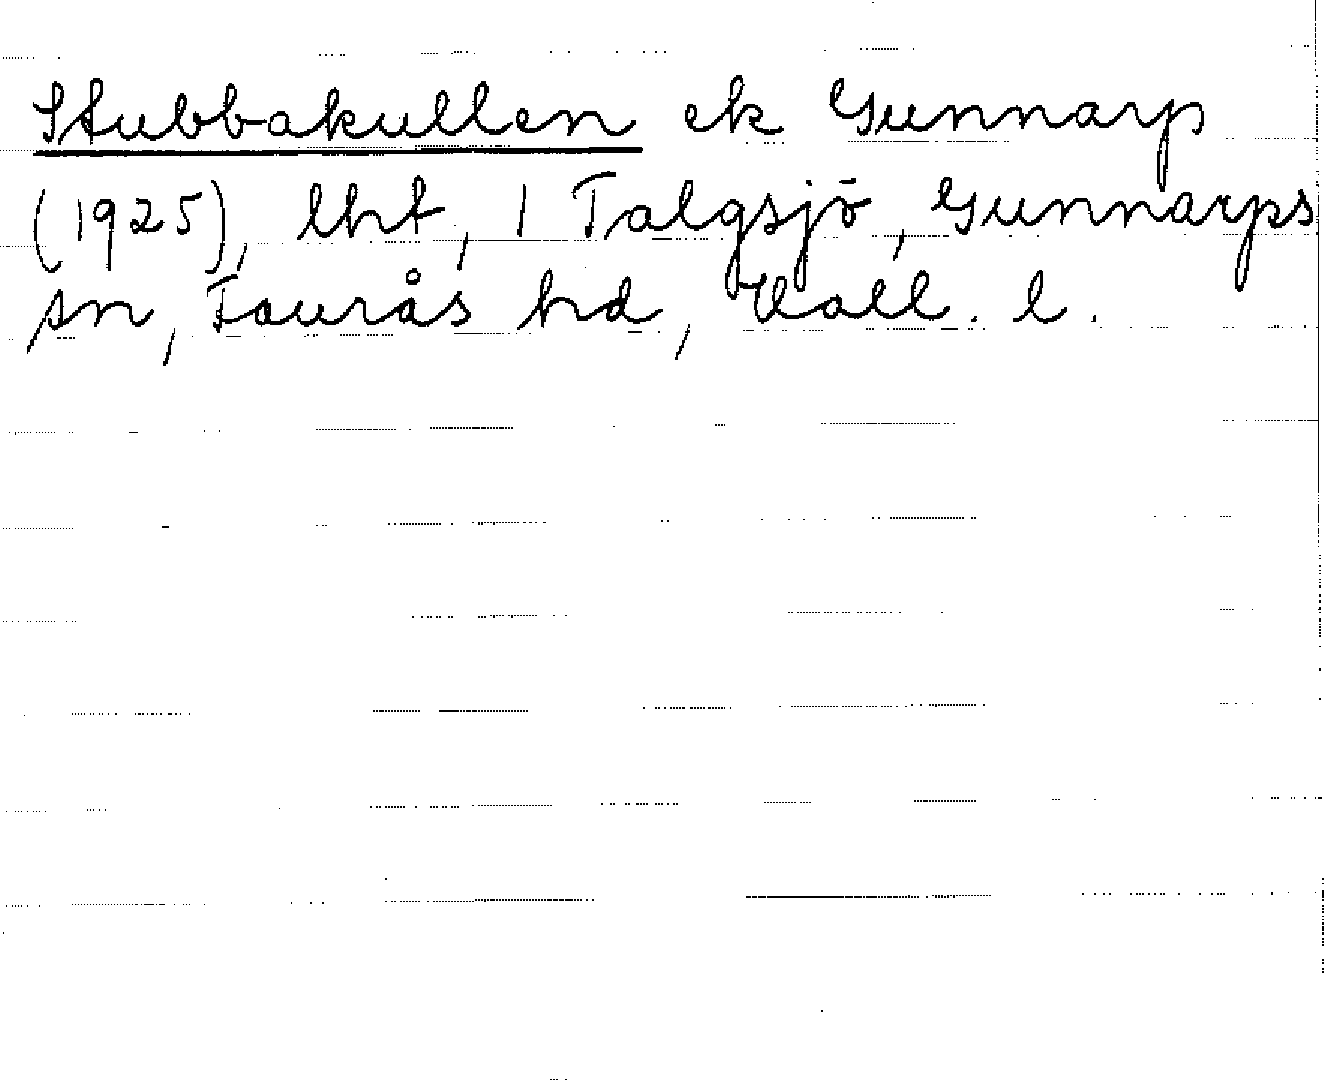 Stubbakullen ek Gunnarp
(1925), lht, 1 Talgsjö, Gunnarps
sn, Faurås hd, Hall. l.